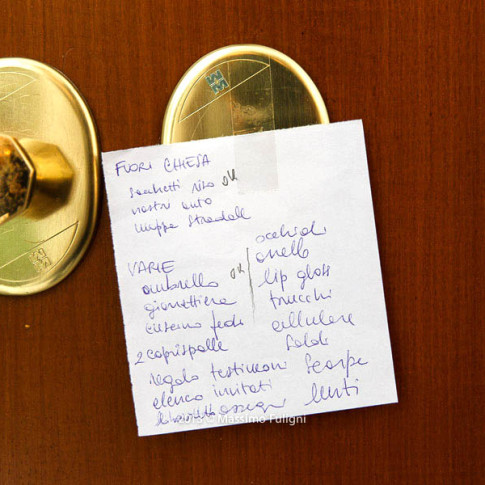 FUORI CHIESA
sacchetti riso OK
nastri auto
mappe stradali
VARIE
ombrello OK
giarrettiera
cuscino fedi
2 coprispalle
regalo testimoni
elenco invitati
libretto assegni
occhiali
anello
lip gloss
trucchi
cellulare
soldi
scarpe
lenti
© Massimo Fuligni